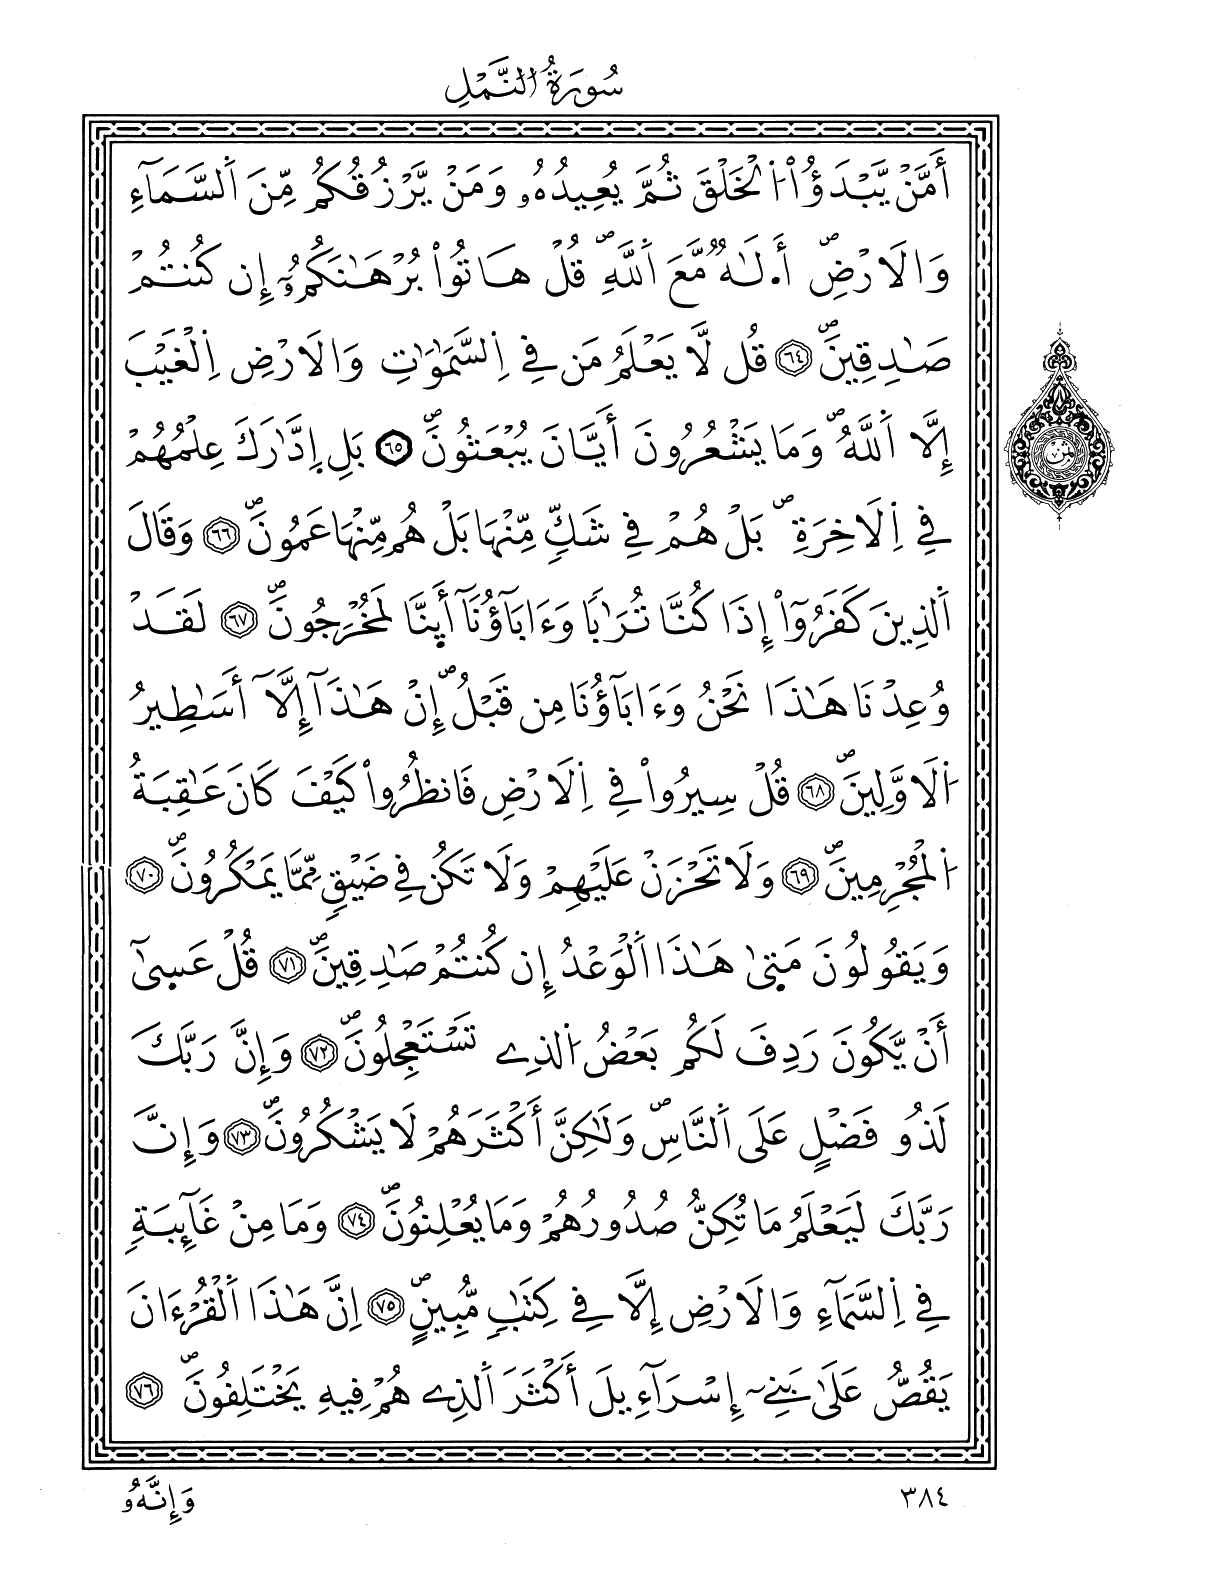 سُورَةُ النَّمْلِ
أَمَّنْ يَّبْدَؤُاْ اُ۬لْخَلْقَ ثُمَّ يُعِيدُهُۥ وَمَنْ يَّرْزُقُكُم مِّنَ اَ۬لسَّمَآءِ
وَالَارْضِۖ أَ۟لَٰهٞ مَّعَ اَ۬للَّهِۖ قُلْ هَاتُواْ بُرْهَٰنَكُمُۥٓ إِن كُنتُمْ
صَٰدِقِينَۖ ٦٤ قُل لَّا يَعْلَمُ مَن فِے اِ۬لسَّمَٰوَٰتِ وَالَارْضِ اِ۬لْغَيْبَ
إِلَّا اَ۬للَّهُۖ وَمَا يَشْعُرُونَ أَيَّانَ يُبْعَثُونَۖ ٦٥ بَلِ اِ۪دَّٰرَكَ عِلْمُهُمْ
فِے اِ۬لَاخِرَةِۖ بَلْ هُمْ فِے شَكّٖ مِّنْهَا بَلْ هُم مِّنْهَا عَمُونَۖ ٦٦ وَقَالَ
اَ۬لذِينَ كَفَرُوٓاْ إِذَا كُنَّا تُرَٰباٗ وَءَابَآؤُنَآ أَى۪نَّا لَمُخْرَجُونَۖ ٦٧ لَقَدْ
وُعِدْنَا هَٰذَا نَحْنُ وَءَابَآؤُنَا مِن قَبْلُۖ إِنْ هَٰذَآ إِلَّآ أَسَٰطِيرُ
اُ۬لَاوَّلِينَۖ ٦٨ قُلْ سِيرُواْ فِے اِ۬لَارْضِ فَانظُرُواْ كَيْفَ كَانَ عَٰقِبَةُ
اُ۬لْمُجْرِمِينَۖ ٦٩ وَلَا تَحْزَنْ عَلَيْهِمْ وَلَا تَكُن فِے ضَيْقٖ مِّمَّا يَمْكُرُونَۖ ٧٠
وَيَقُولُونَ مَت۪يٰ هَٰذَا اَ۬لْوَعْدُ إِن كُنتُمْ صَٰدِقِينَۖ ٧١ قُلْ عَس۪يٰٓ
أَنْ يَّكُونَ رَدِفَ لَكُم بَعْضُ اُ۬لذِے تَسْتَعْجِلُونَۖ ٧٢ وَإِنَّ رَبَّكَ
لَذُو فَضْلٍ عَلَى اَ۬لنَّاسِۖ وَلَٰكِنَّ أَكْثَرَهُمْ لَا يَشْكُرُونَۖ ٧٣ وَإِنَّ
رَبَّكَ لَيَعْلَمُ مَا تُكِنُّ صُدُورُهُمْ وَمَا يُعْلِنُونَۖ ٧٤ وَمَا مِنْ غَآئِبَةٖ
فِے اِ۬لسَّمَآءِ وَالَارْضِ إِلَّا فِے كِتَٰبٖ مُّبِينٍۖ ٧٥ اِنَّ هَٰذَا اَ۬لْقُرْءَانَ
يَقُصُّ عَلَىٰ بَنِےٓ إِسْرَآءِيلَ أَكْثَرَ اَ۬لذِے هُمْ فِيهِ يَخْتَلِفُونَۖ ٧٦
وَإِنَّهُۥ
٣٨٤